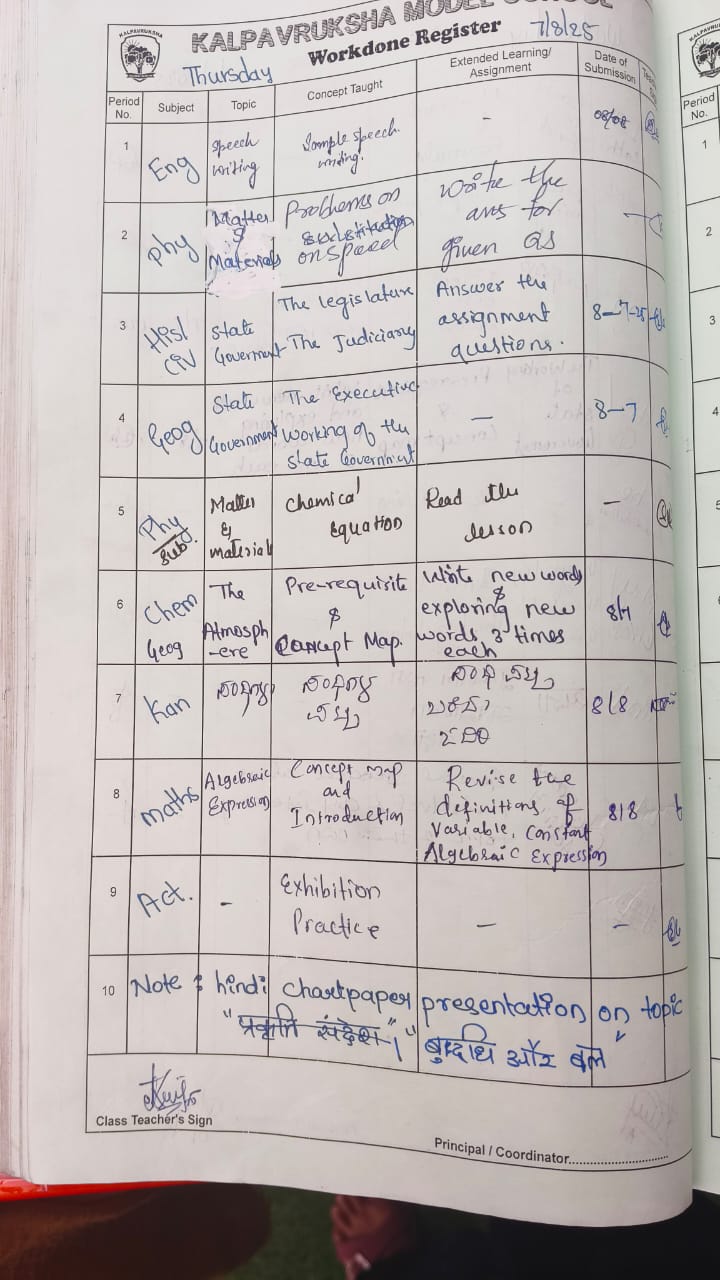 KALPAVRUKSHA
KALPAVRUKSHA MODEL SCHOOL
Workdone Register
7/8/25
Thursday
Period No. Subject Topic Concept Taught Extended Learning/ Assignment Date of Submission
1 Eng Speech writing Sample speech writing. - 08/08
2 Phy Matter & Materials Problems on on speed Write the ans for given Qs
3 Hist Civ State Goverment The legislature The Judiciary Answer the assignment questions. 8-7-25
4 Geog State Government The Executive Working of the State Government — 8-7
5 Phy Sub. Matter & material Chemical Equation Read the lesson -
6 Chem Geog The Atmosph -ere Pre-requisite & Concept Map. Write new words & exploring new words 3 times each
7 Kan 8/8
8 Maths Algebraic Expression Concept Map and Introduction Revise the definitions of Variable, Constant Algebraic Expression 8/8
9 Act. - Exhibition Practice — -
10 Note : hindi Chartpaper presentation on topic
"प्रकृति संदेश"। "बुद्धि और बल"
Class Teacher's Sign
Principal / Coordinator
Period No.
1
2
3
4
5
6
7
8
9
10